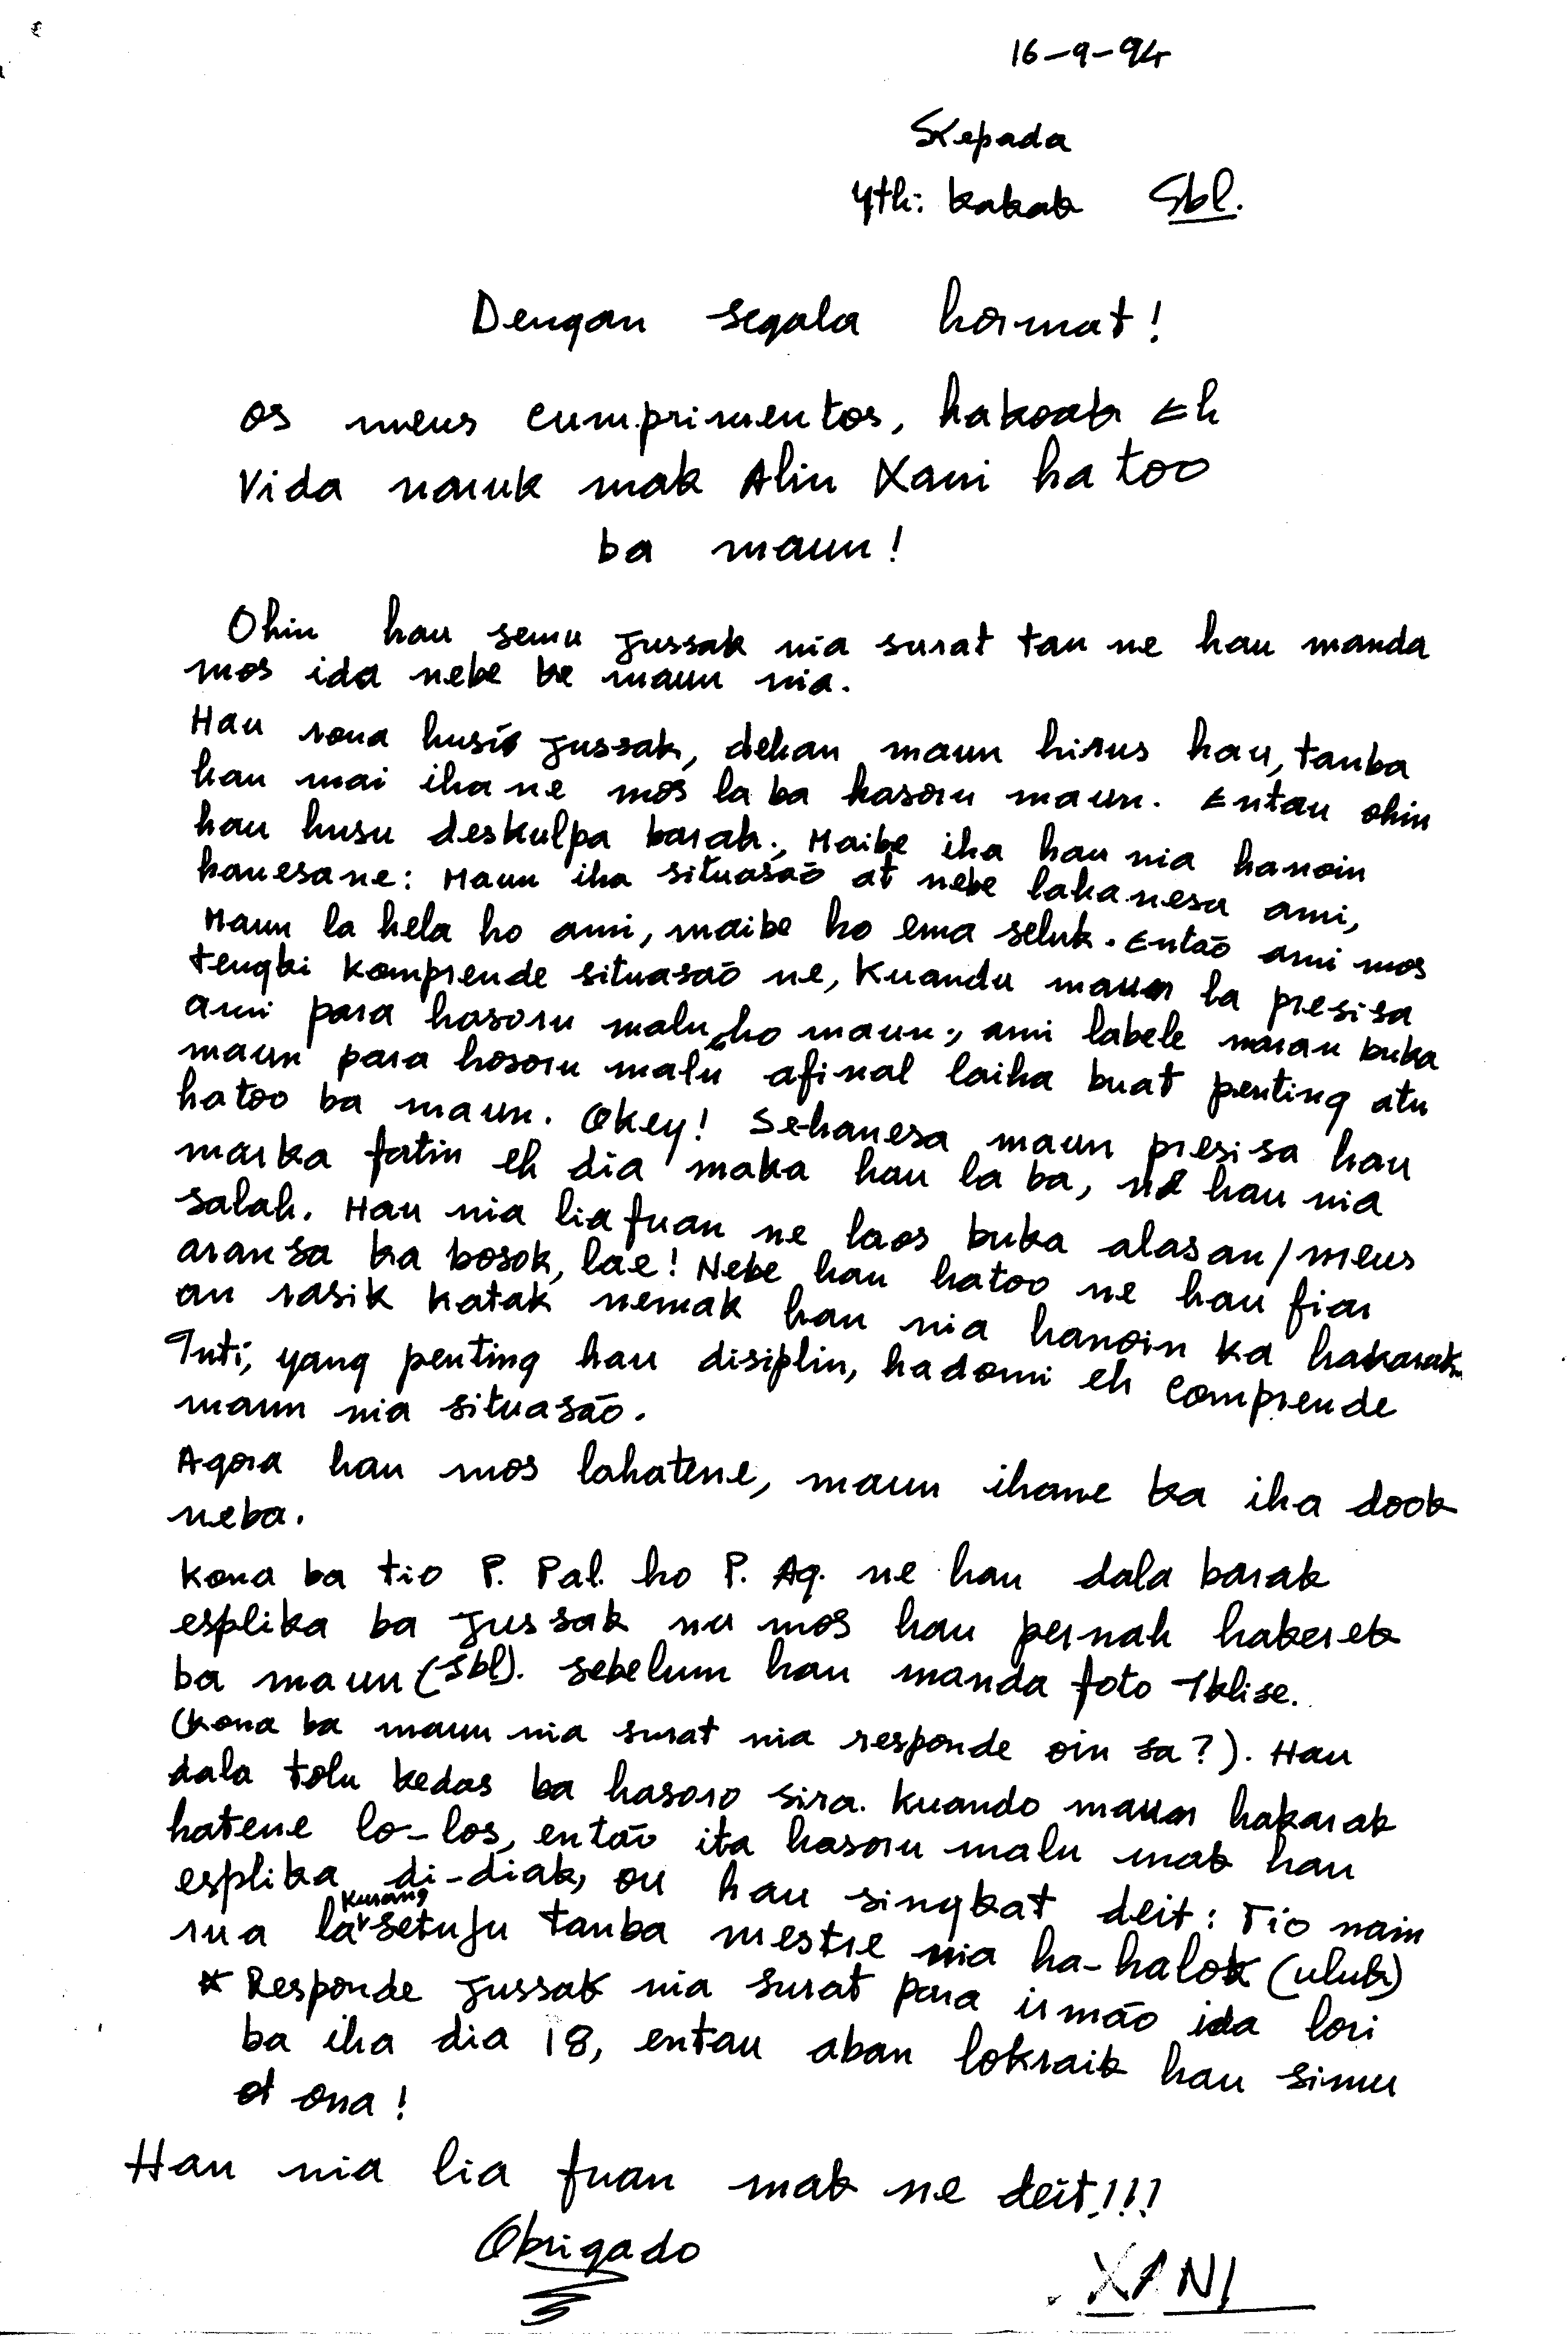 16-9-94
Kepada
Yth: kakak Sbl.
Dengan segala hormat!
os meus cumprimentos, hakoak Eh
Vida naruk mak Alin Xani hatoo
ba maun!
Ohin hau semu Jussak nia surat tan ne hau manda
mos ida nebe be maun nia.
Hau rona husi Jussak, dehan maun hirus hau, tanba
hau mai iha ne mos la ba hasoru maun. Entau ohin
hau husu deskulpa barak., Maibe iha hau nia hanoin
hanesane: Maun iha situasaõ at nebe lahanesa ami,
Maun la hela ho ami, maibe ho ema seluk. Entaõ ami mos
tengki komprende situasaõ ne, Kuandu maun la presisa
ami para hasoru malu ho maun., ami labele naran buka
maun para hosoru malu afinal laiha buat penting atu
hatoo ba maun. Okey! Se-hanesa maun presisa hau
marka fatin eh dia maka hau la ba, ne hau nia
salah. Hau nia liafuan ne laos buka alasan/meus
aransa ka bosok, lae! Nebe hau hatoo ne hau fiar
an rasik katak nemak hau nia hanoin ka hakarak.
Inti, yang penting hau disiplin, hadomi eh comprende
maun nia situasaõ.
Agora hau mos lahatene, maun ihane ka iha dook
neba.
Kona ba tio P. Pal. ho P. Aq. ne hau dala barak
esplika ba Jussak nu mos hau pernah hakerek
ba maun (Sbl). sebelum hau manda foto +klise.
(Kona ba maun nia surat nia responde oin sa?). Hau
dala tolu kedas ba hasoro sira. Kuando maun hakarak
hatene lo-los, entaõ ita hasoru malu mak hau
esplika di-diak, ou hau singkat deit: Tio nain
rua la kurang setuju tanba mestre nia ha-halok (uluk)
* Responde Jussak nia surat para irmão ida lori
ba iha dia 18, entau aban lokraik hau simu
ot ona!
Hau nia lia fuan mak ne deit!!!
Obrigado
XANI